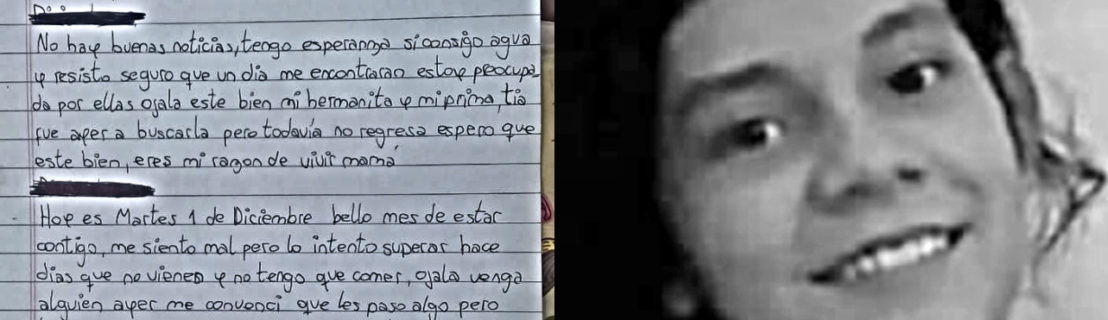 No hay buenas noticias, tengo esperanza si consigo agua
y resisto seguro que un dia me encontraran estoy preocupa
da por ellas ojala este bien mi hermanita y mi prima, tia
fue ayer a buscarla pero todavía no regresa espero que
este bien, eres mi razon de vivir mamá
Hoy es Martes 1 de Diciembre bello mes de estar
contigo, me siento mal pero lo intento superar hace
dias que no vienen y no tengo que comer, ojala venga
alguien ayer me convenci que les paso algo pero